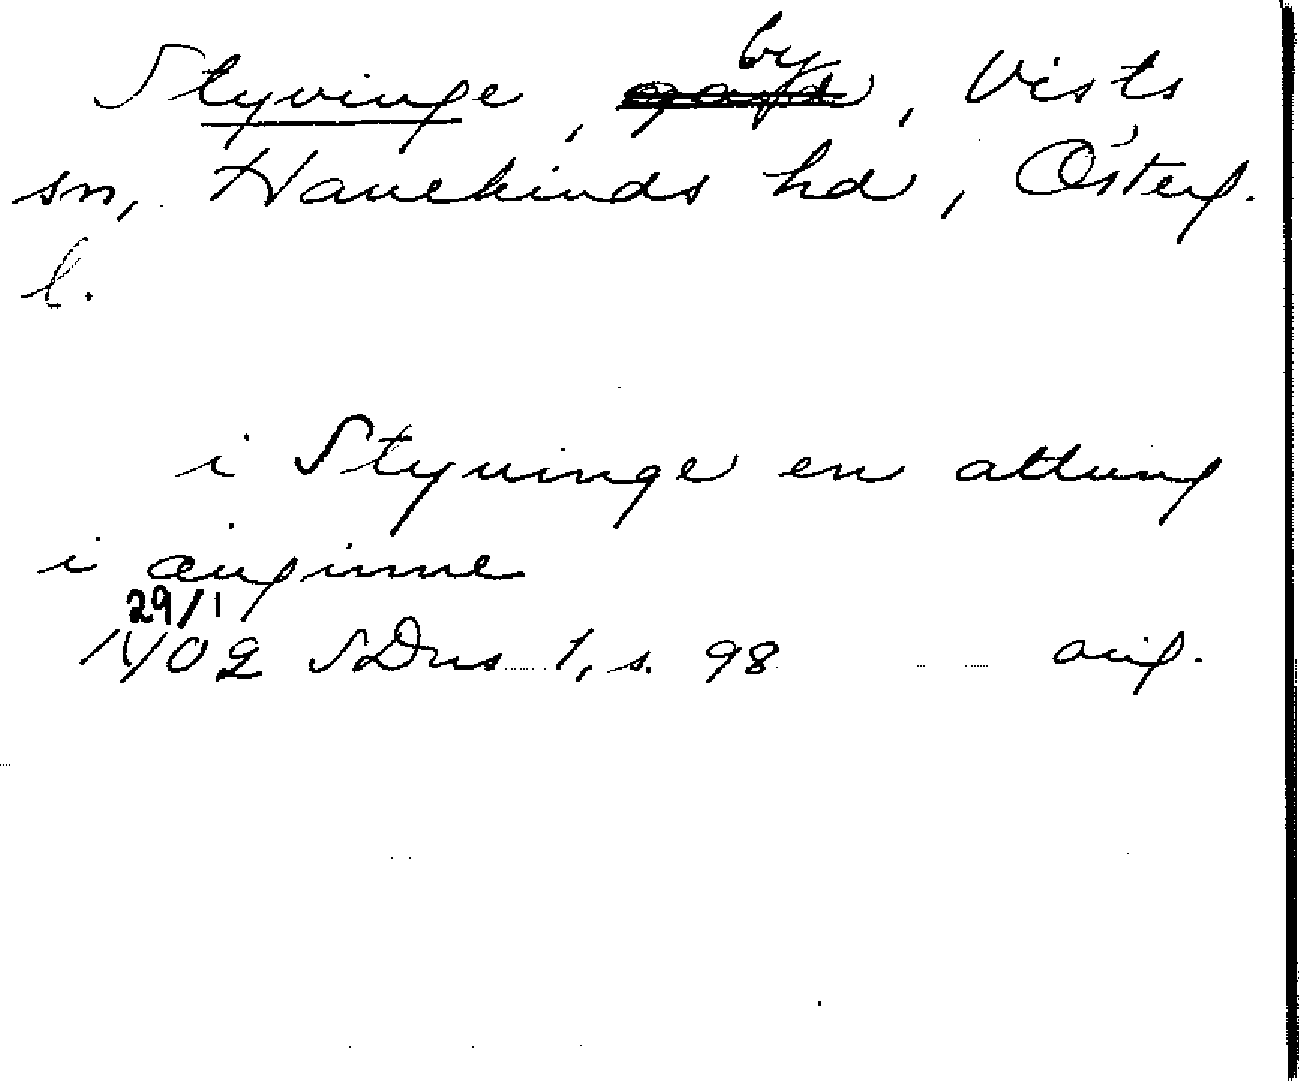 Styvinge, by, Vists
sn, Hanekinds hd, Österg.
l.
i Styuinge en attung
i ænginne
29/1
1402 SDns 1, s. 98 orig.